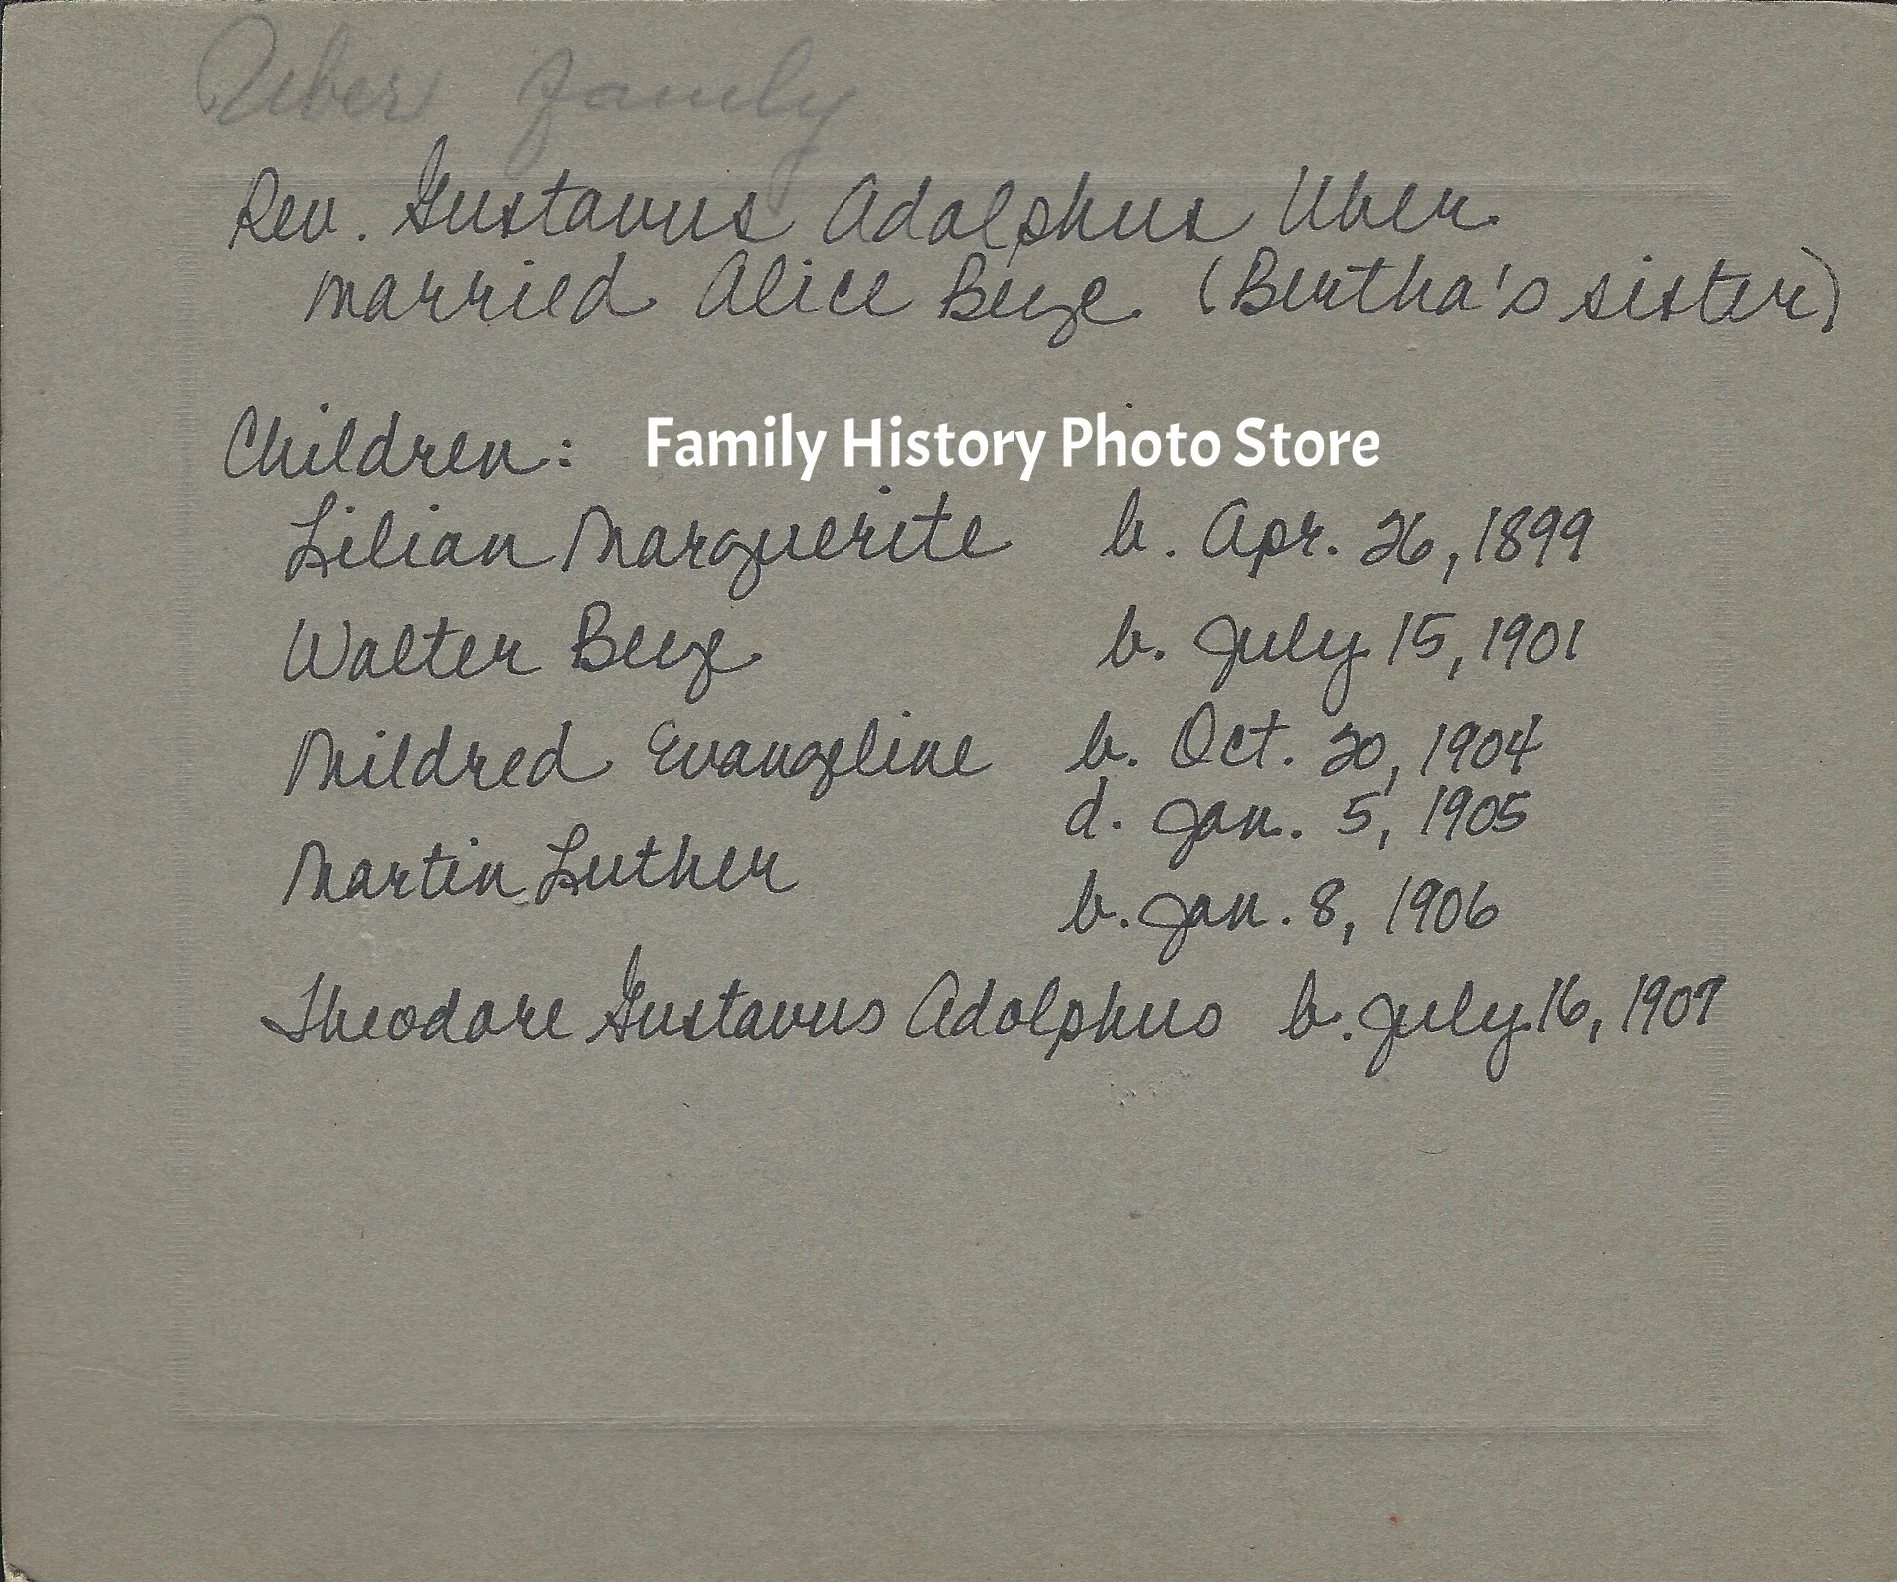 Uber family
Rev. Gustavus Adolphus Uber
married Alice Beeze (Bertha's sister)
Children:
Family History Photo Store
Lilian Marguerite b. Apr. 26, 1899
Walter Beeze b. July 15, 1901
Mildred Evangeline b. Oct. 20, 1904
d. Jan. 5, 1905
Martin Luther
b. Jan. 8, 1906
Theodore Gustavus Adolphus b. July 16, 1907